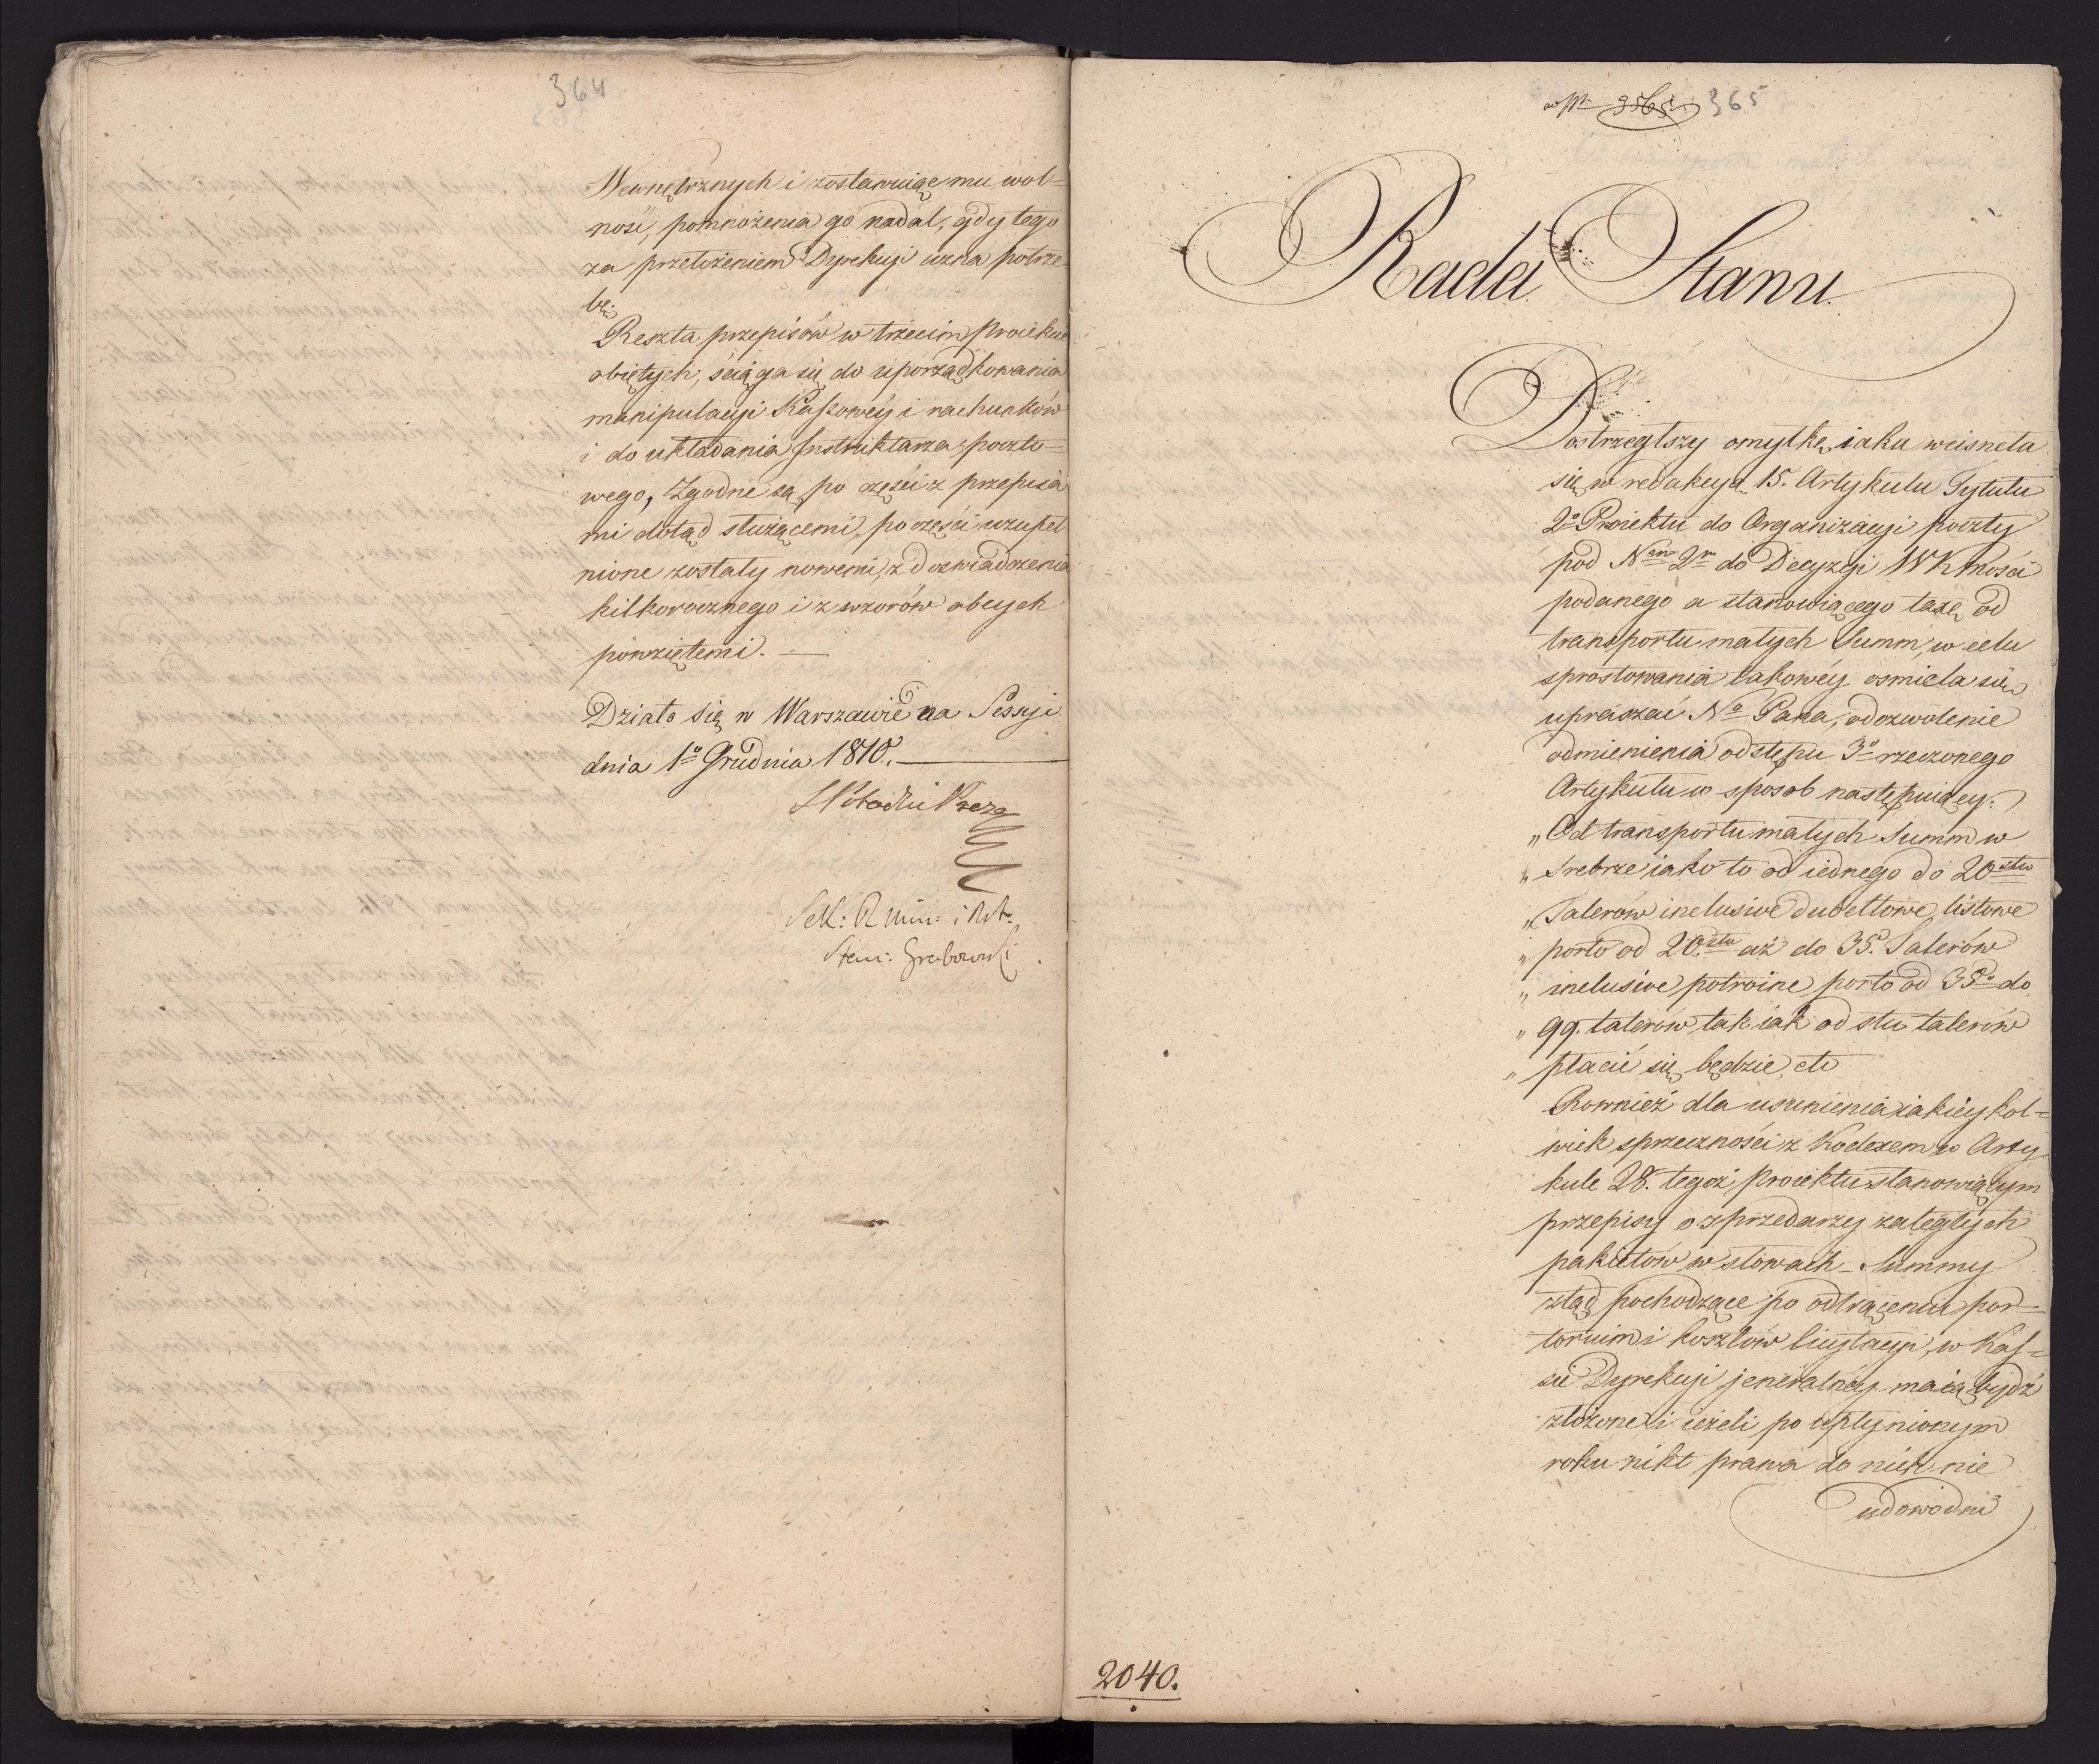 364
Wewnętrznych i zostawuiąc mu wol=
ność, pomnożenia go nadal, gdy tego
za przełożeniem Dyrekcyi uzna potrze
bę.
Reszta przepisów w trzecim Proiekcie
obiętych, ściąga się do uporządkowania
manipulacyi Kassowéy i rachunków
i do układania Instruktarza poczto=
wego, Zgodne są po części z przepisa
mi dotąd służącemi, po części uzupeł
nione zostały nowemi, z doswiadczenia
kilkorocznego i z wzorów obcych
powziętemi.
Działo się w Warszawie na Sessyi
dnia 1º Grudnia 1810.
Sekr: R Min: i St:
Stan: Grabowski
3565 365
Rada Stanu.
Dostrzegłszy omyłkę iaka wcisneła
się w redakcyą 15. Artykułu Tytułu
2º Proiektu do Organizacyi poczty
pod Nrem 2m do Decyzyi WKMości
podanego a stanowiącego taxę od
transportu małych Summ, w celu
sprostowania takowéy osmiela się
upraszać Nº Pana, o dozwolenie
odmienienia odstępu 3º rzeczonego
Artykułu w sposob następuiący:
„Od transportu małych Summ w
„Srebrze iako to od iednego do 20stu
„Talerów inclusive dubeltowe listowe
„porto od 20.stu aż do 35. Talerów
„inclusive potroine porto od 35º do
„99. talerow tak iak od stu talerów
„płacić się będzie, etc
Rownież dla usunienia iakieykol=
wiek sprzeczności z Kodexem w Arty
kule 28. tegoż Proiektu stanowiącym
przepisy o sprzedarzy zaległych
pakietów w słowach – Summy
ztąd pochodzące po odtrąceniu por=
torium i kosztów licytacyi, w Kas=
sie Dyrekcyi jeneralnéy maią bydź
złożone i ieżeli po upłynionym
roku nikt prawa do nich nie
udowodni
2040.